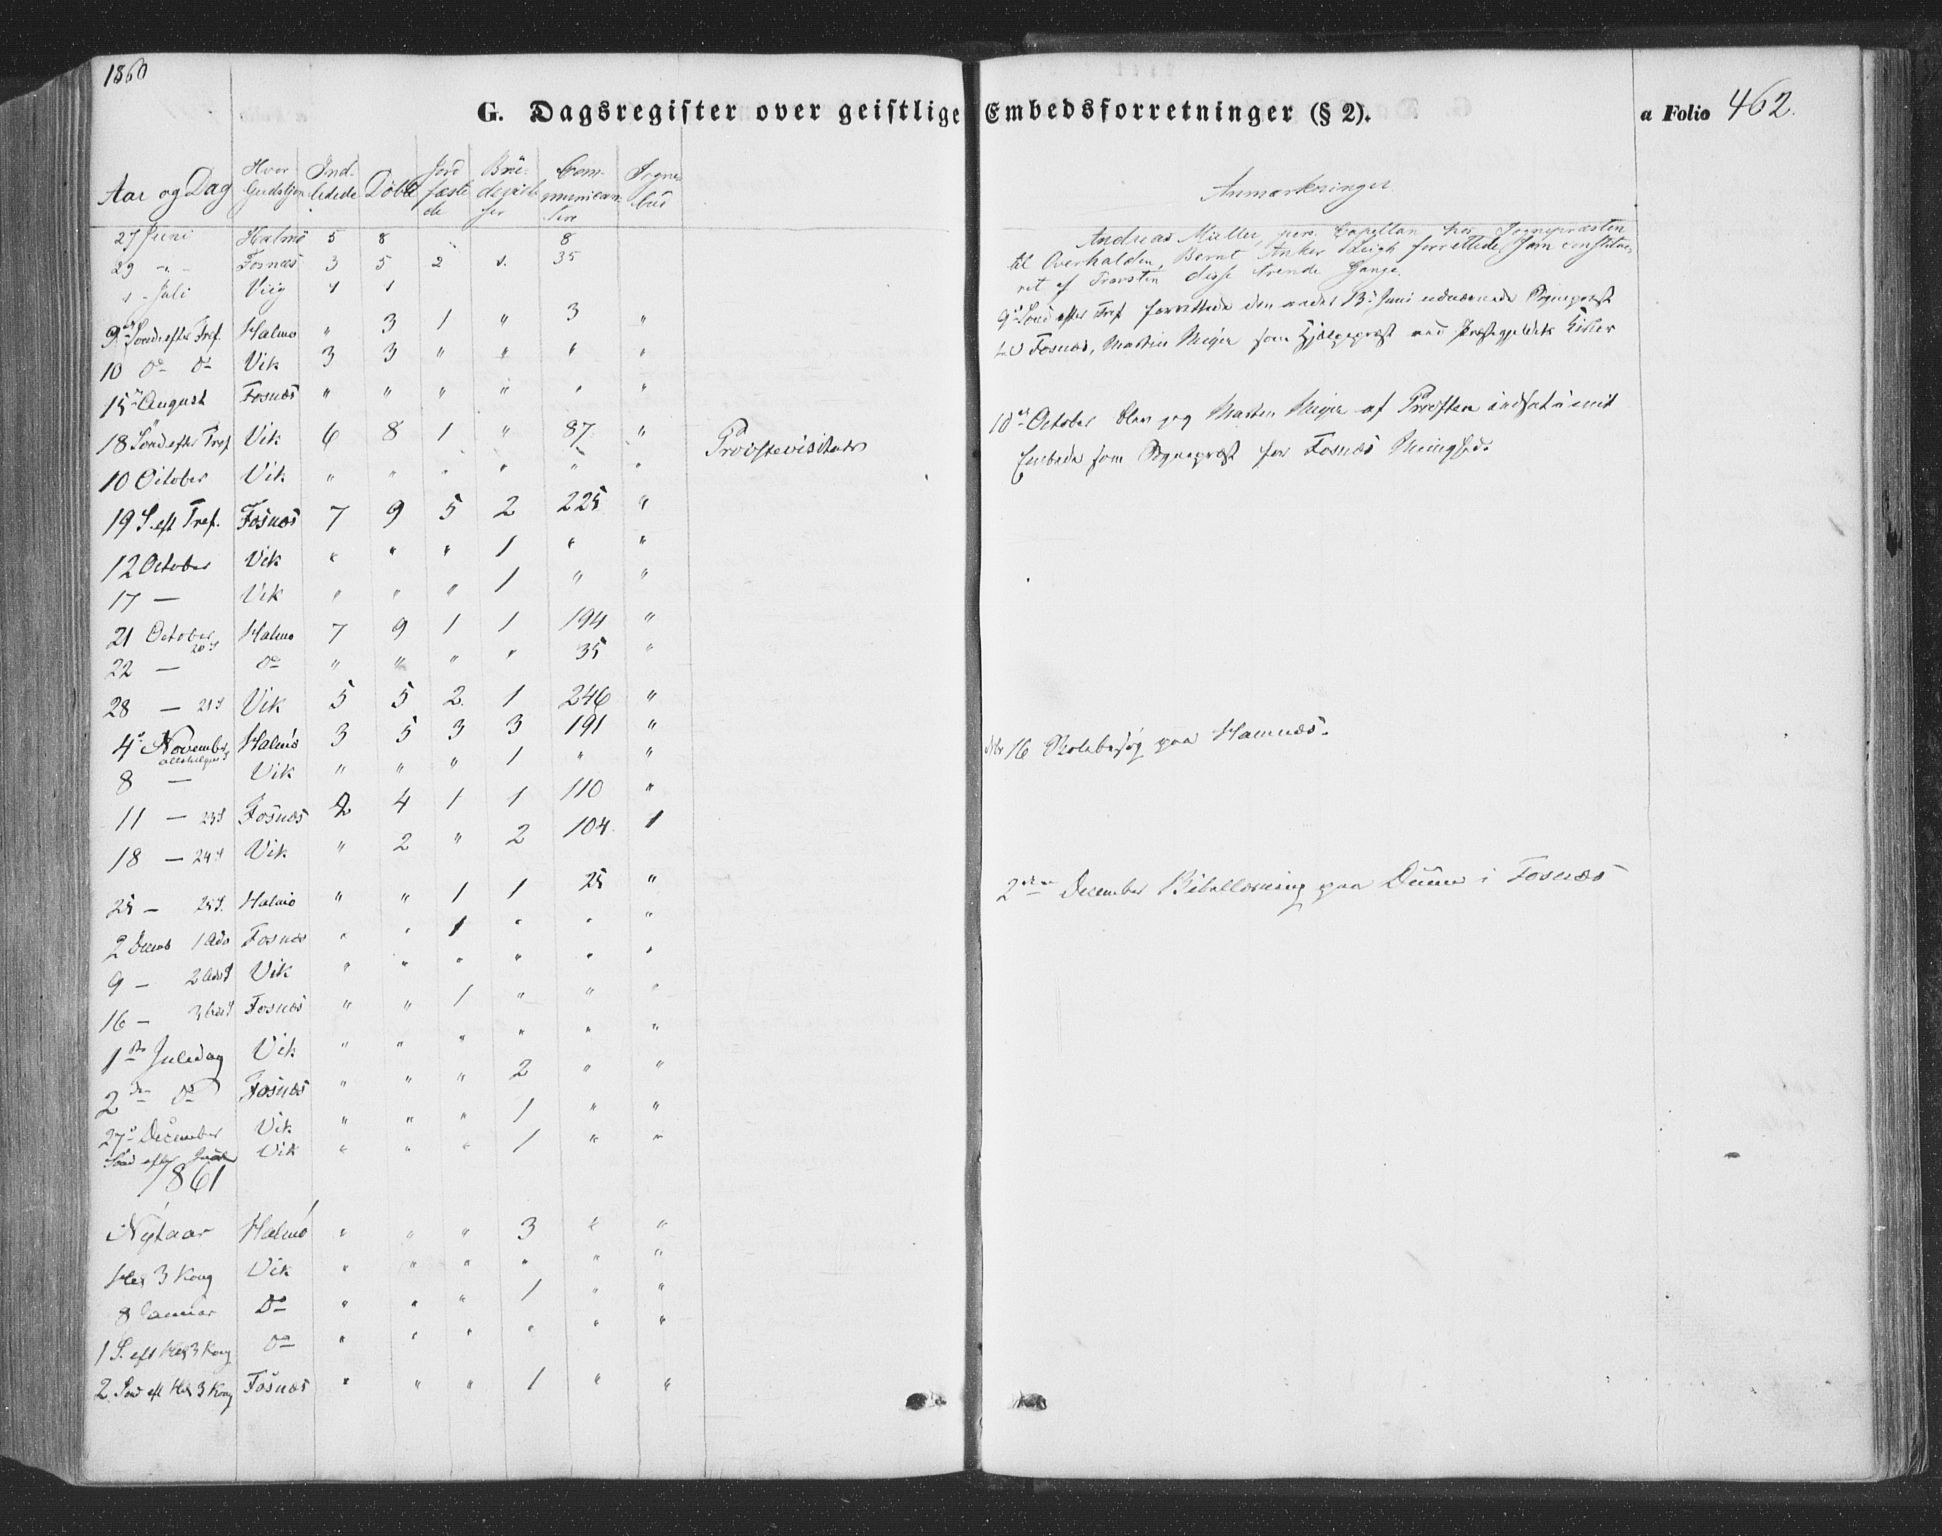 1860
G. Dagsregister over geistlige Embedsforretninger (§ 2). a Folio 462.
Aar og Dag Hvor Gudstjen Ind-ledede Döbte Jord fæste de Brudevielser Communicantere Sognebud
27 Juni Halmö 5 8 8
29 - Fosnæs 3 5 2 35
1 Juli Viig 1 1
9de Sønd efter Tref. Halmö " 3 1 " 3 "
10 do do Vik 3 3 " " " "
15de August Fosnæs " " " " " "
18 Sønd efter Tref Vik 6 8 1 " 87 " Proostevisitats
10 October Vik " " " " " "
19 S. eft Tref. Fosnæs 7 9 5 2 225 "
12 October Vik " " " 1 " "
17 — Vik " " " 1 " "
21 October 20 S Halmö 7 9 1 1 194 "
22 — do " " " " 35 "
28 — 21 S Vik 5 5 2 1 246 "
4de November Allehelgens Halmö 3 5 3 3 191 "
8 — Vik " " " 1 " "
11 — 23 S Fosnæs 2 4 1 1 110 "
18 — 24 S Vik " 2 " 2 104 1
25 — 25 S. Halmö " " 1 1 25 "
2 Decemb 1 Adv Fosnæs " " 1 " " "
9 — 2 Adv S Vik " " " " " "
16 — 3 Adv S Fosnæs " " 1 " " "
1ste Juledag Vik " " " " " "
2den do Fosnæs " " " 2 " "
27de December Vik " " " 1 " "
Sønd efter Juul Vik " " " 1 " "
1861
Nytaar Halmö " " " 3 " "
Hel 3 Kong Vik " " " " " "
8 Januar Do " " " 1 " "
1 S. eft Hel 3 Kong do " " " " " "
2 Søn eft Hel 3 Kong Fosnæs " " " 1 " "
Anmærkninger
Andreas Müller, pers. Capellan hos Sognepræsten
til Overhalden, Bernt Anker Leigh forrettede som constitue-
ret af Provsten disse trende Gange.
9de Sønd efter Tref forrettede den under 13de Juni udnævnede Sognepræst
til Fosnæs, Martin Meyer som Hjælpepræst ved Præstegjeldets Kirker
10de October blev jeg Martin Meyer af Provsten indsat i mit
Embede som Sognepræst for Fosnæs Menighed.
16 Skolebesøg paa Hamnæs.
2den December Bibellæsning paa Duun i Fosnæs